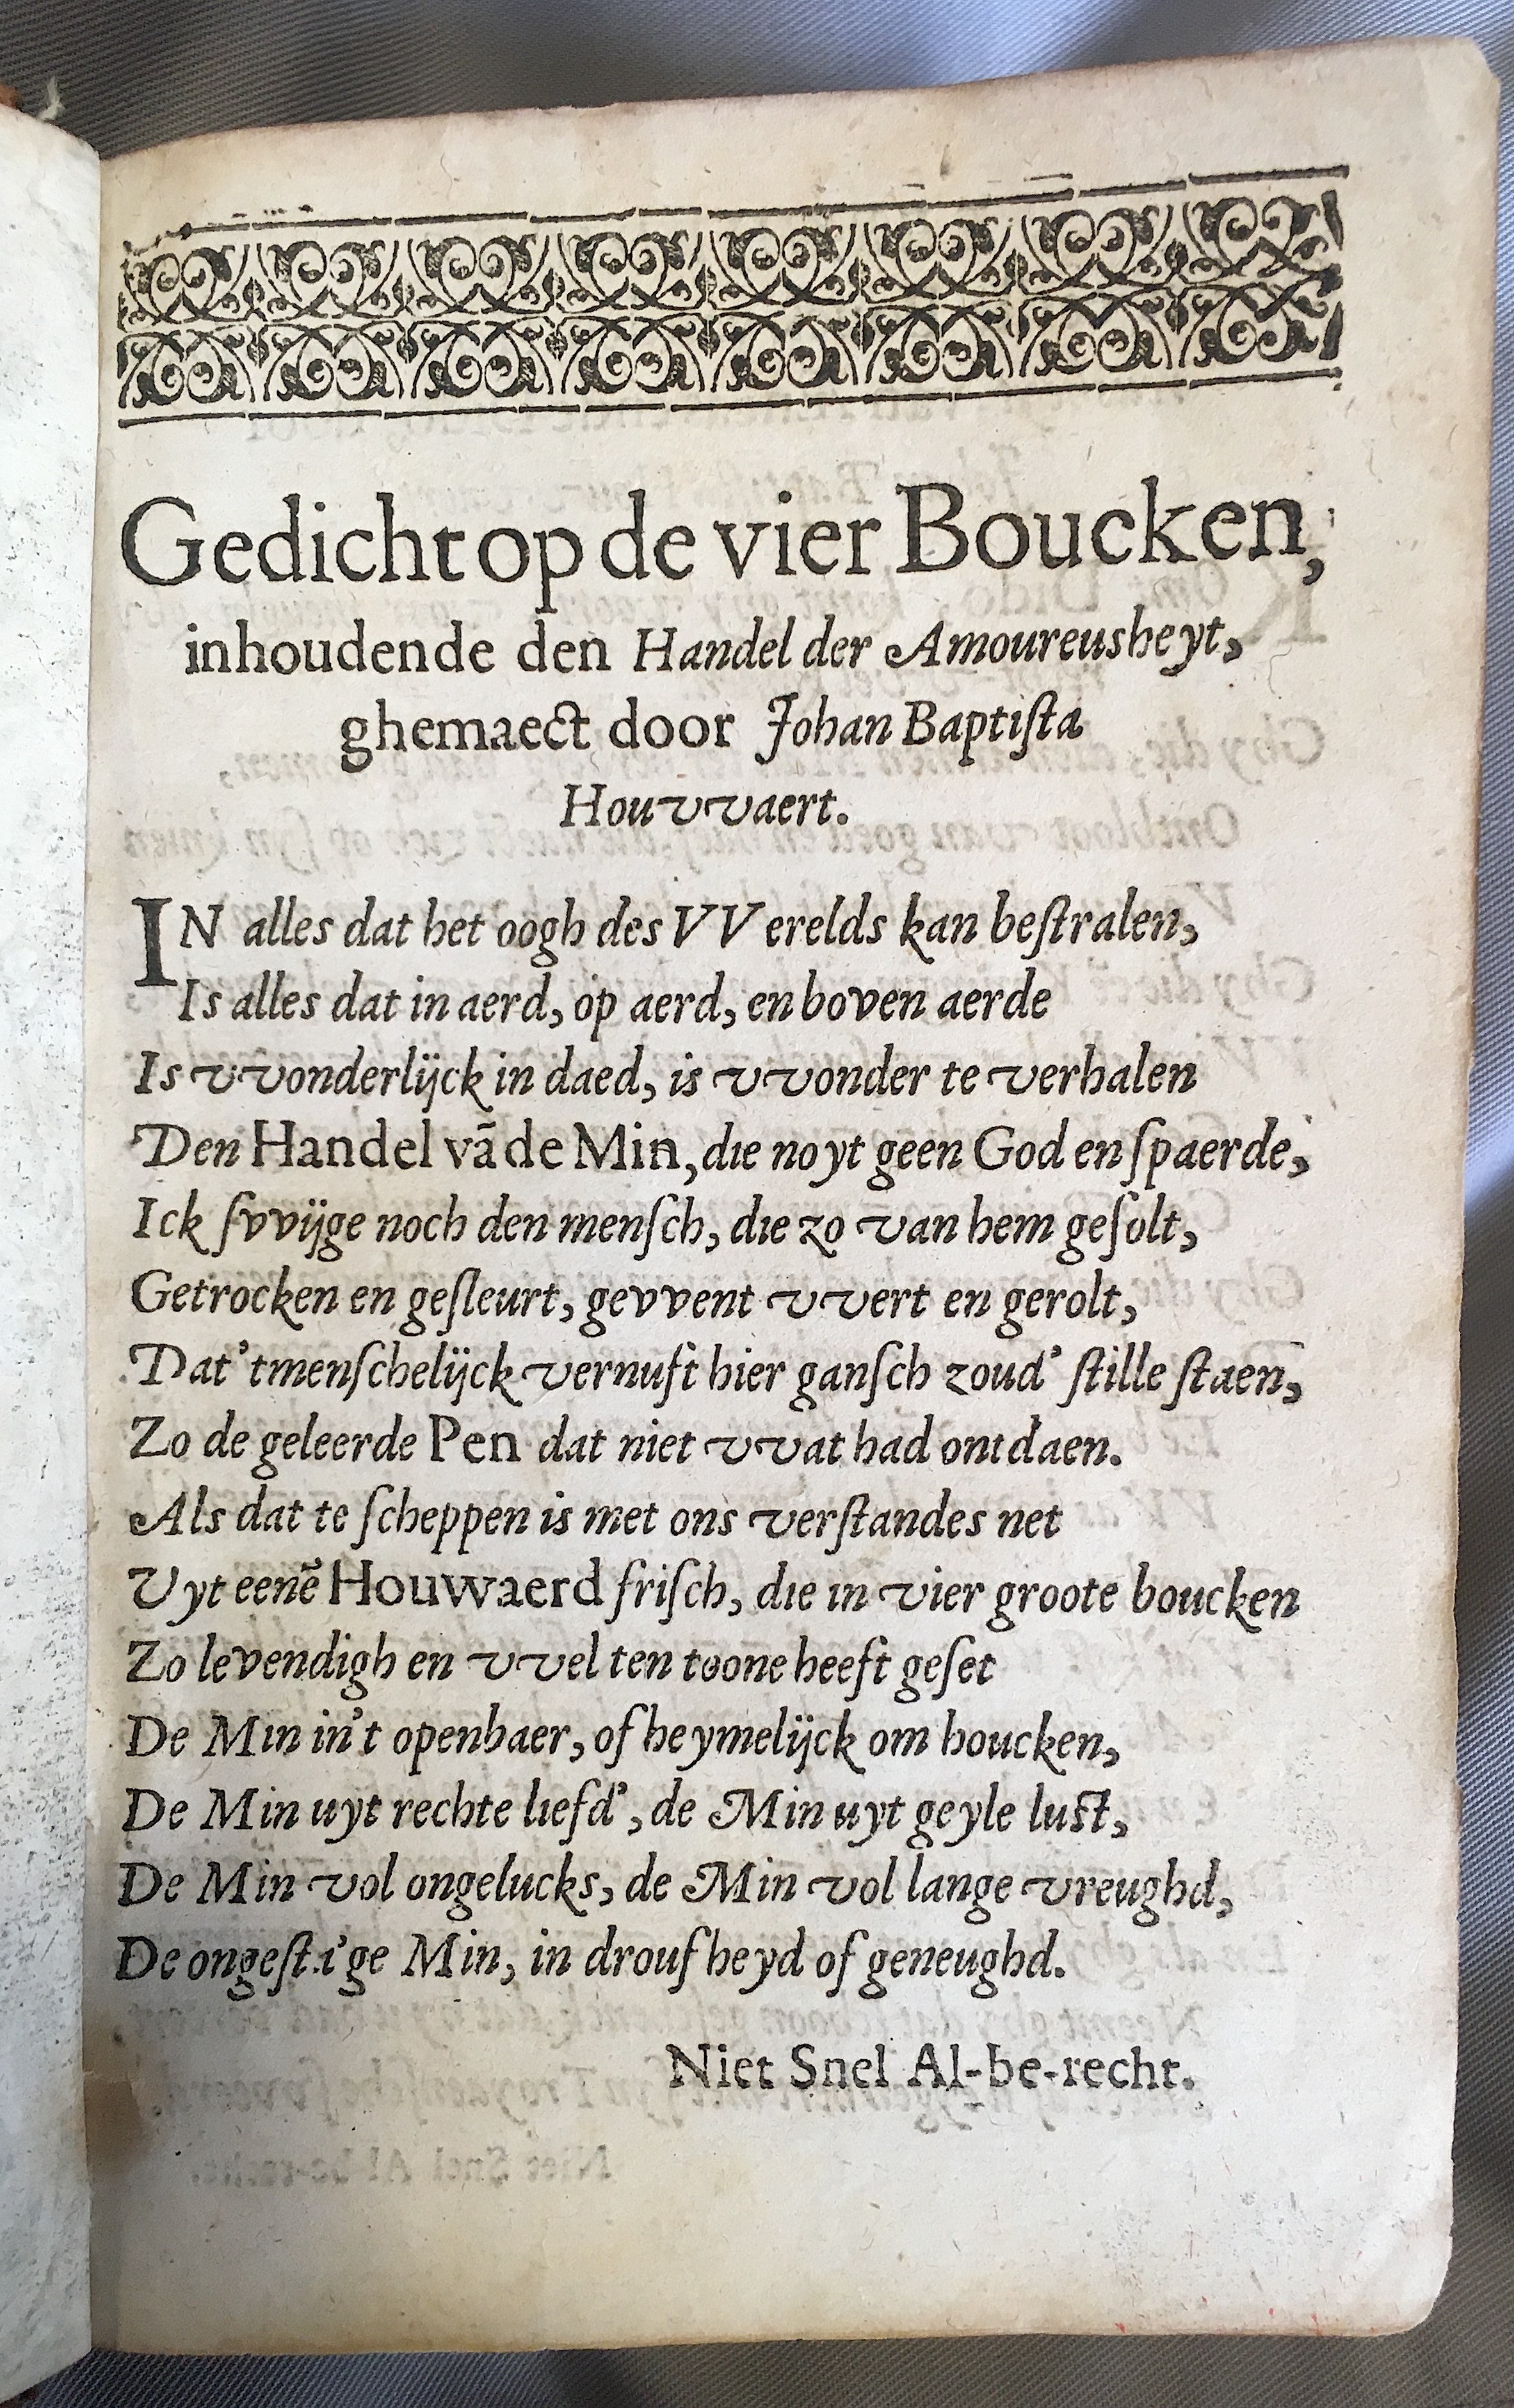 Gedicht op de vier Boucken,
inhoudende den Handel der Amoureusheyt,
ghemaect door Johan Baptiſta
Houvvaert.
IN alles dat het oogh des VVerelds kan beſtralen,
Is alles dat in aerd, op aerd, en boven aerde
Is vvonderlijck in daed, is vvonder te verhalen
Den Handel vã de Min, die noyt geen God en ſpaerde,
Ick ſvvijge noch den menſch, die zo van hem geſolt,
Getrocken en geſleurt, gevvent vvert en gerolt,
Dat'tmenſchelijck vernuft hier ganſch zoud' ſtille ſtaen,
Zo de geleerde Pen dat niet vvat had ontdaen.
Als dat te ſcheppen is met ons verſtandes net
Uyt eenẽ Houwaerd friſch, die in vier groote boucken
Zo levendigh en vvel ten toone heeft geſet
De Min in't openbaer, of heymelijck om houcken,
De Min uyt rechte liefd', de Min uyt geyle luſt,
De Min vol ongelucks, de Min vol lange vreughd,
De ongeſti'ge Min, in droufheyd of geneughd.
Niet Snel Al-be-recht.